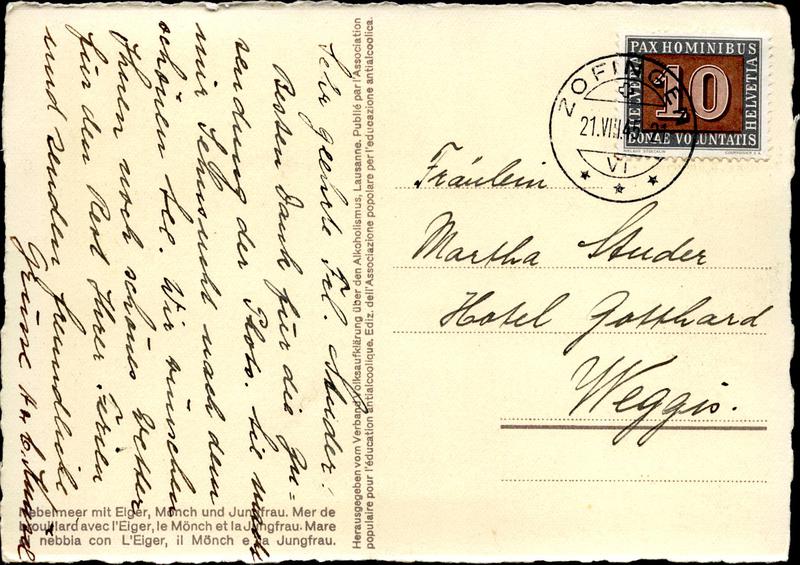 Sehr geehrte Frl. Studer!
Besten Dank für die Zu-
sendung der Photo. Sie macht
mir Sehnsucht nach dem
schönen See. Wir wünschen
Ihnen noch schönes Wetter
für den Rest Ihrer Ferien
und senden freundliche
Grüsse
Herausgegeben vom Verband Volksaufklärung über den Alkoholismus, Lausanne. Publié par l'Association
populaire pour l'éducation antialcoolique. Ediz. dell'Associazione popolare per l'educazione antialcoolica.
Nebelmeer mit Eiger, Mönch und Jungfrau. Mer de
brouillard avec l'Eiger, le Mönch et la Jungfrau. Mare
nebbia con L'Eiger, il Mönch e la Jungfrau.
PAX HOMINIBUS
HELVETIA
10
HELVETIA
BONAE VOLUNTATIS
COURVOISIER S.A.
ZOFINGEN
21.VIII.45
VI
Fräulein
Martha Studer
Hotel Gotthard
Weggis.